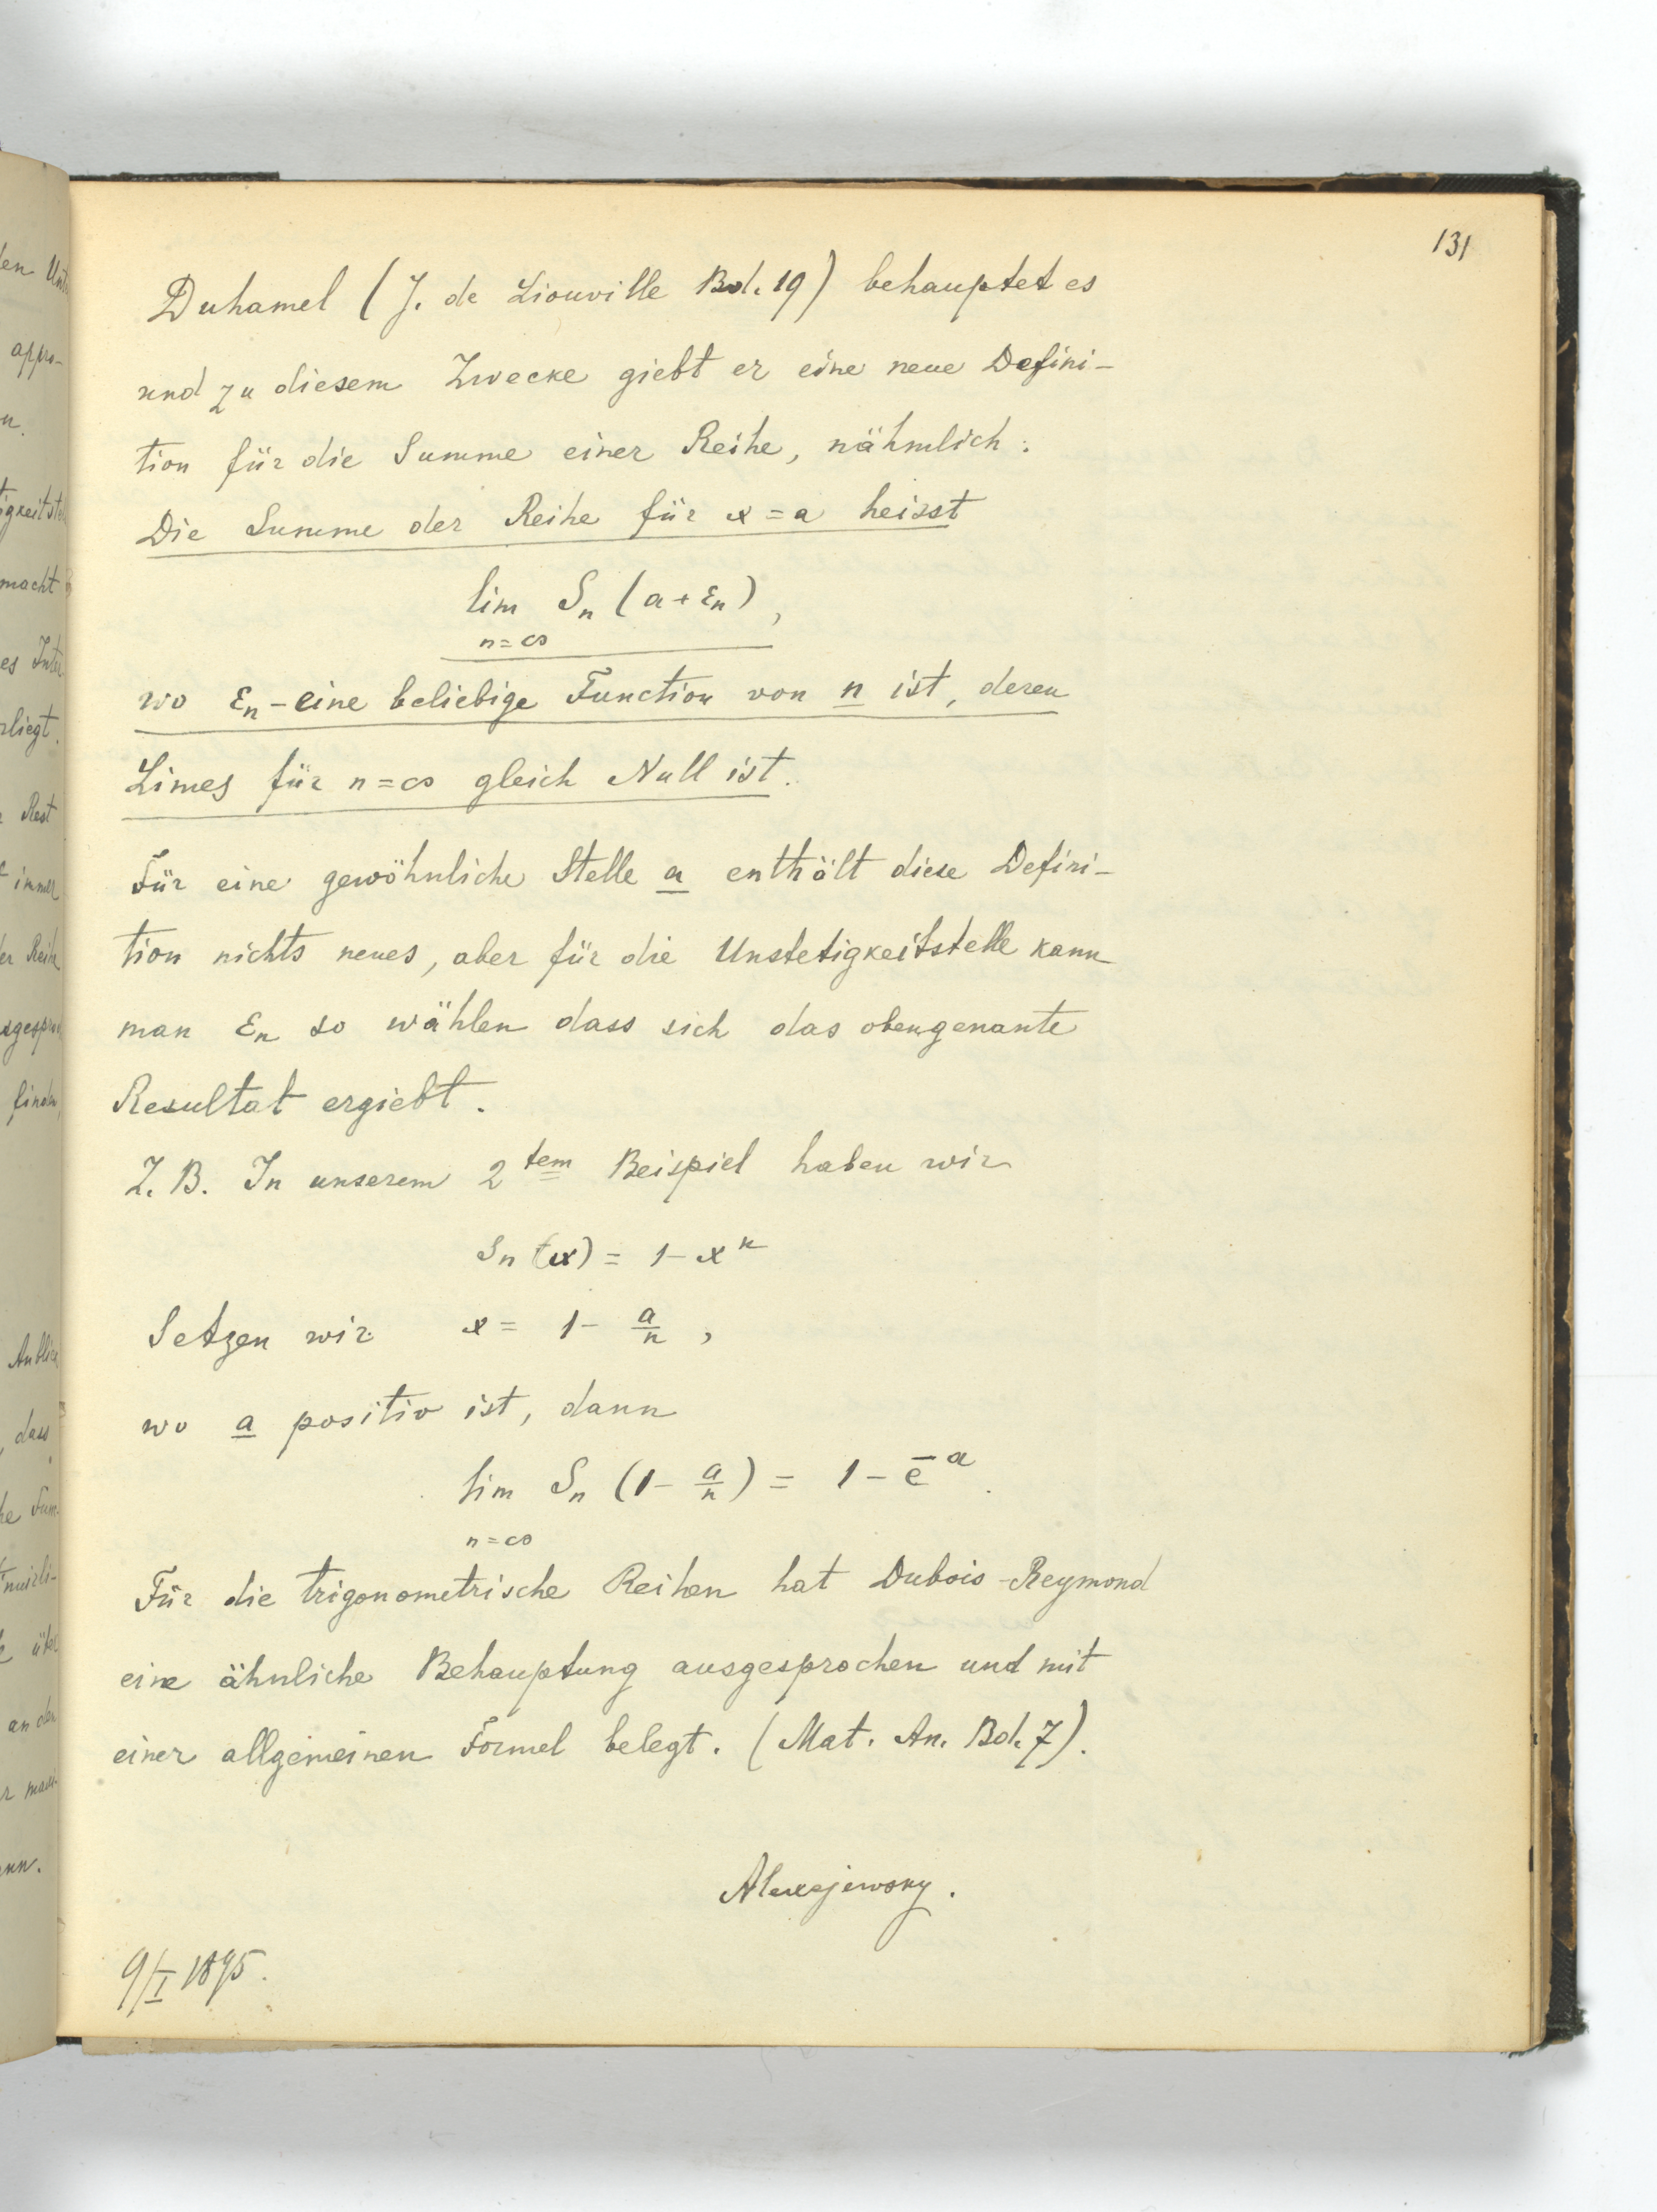 131
Duhamel (J. de Liouville Bd. 19) behauptet es
und zu diesem Zwecke giebt er eine neue Defini-
tion für die Summe einer Reihe, nähmlich:
Die Summe der Reihe für x = a heisst
lim Sₙ (a + εₙ),
n = ∞
wo εₙ - eine beliebige Function von n ist, deren
Limes für n = ∞ gleich Null ist.
Für eine gewöhnliche Stelle a enthält diese Defini-
tion nichts neues, aber für die Unstetigkeitstelle kann
man εₙ so wählen dass sich das obengenante
Resultat ergiebt.
Z. B. In unserem 2tem Beispiel haben wir
Sₙ (x) = 1 - xⁿ
Setzen wir x = 1 - a/n,
wo a positiv ist, dann
lim Sₙ (1 - a/n) = 1 - e^-a.
n = ∞
Für die trigonometrische Reihen hat Dubois-Reymond
eine ähnliche Behauptung ausgesprochen und mit
einer allgemeinen Formel belegt. (Mat. An. Bd. 7).
Alexejewsky.
9/I 1895.
den
appro-
n.
macht
es
rliegt.
Rest
immer
er Reihe
finden,
dass
an der